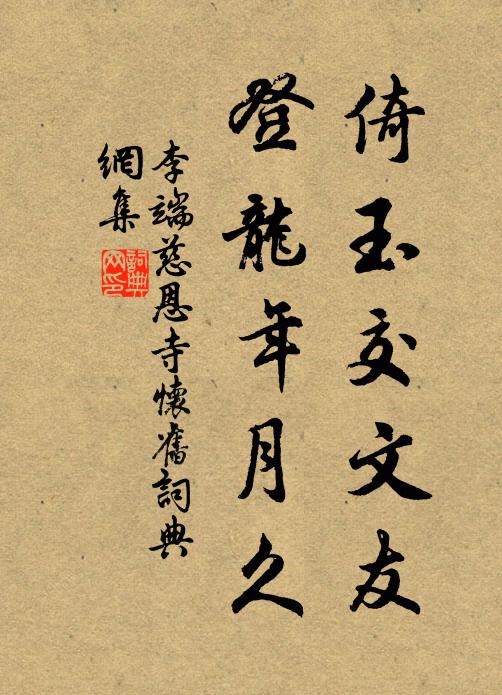 倚玉交文友
登龍年月久
李端慈恩寺懷舊詞典
網集
詞典網印